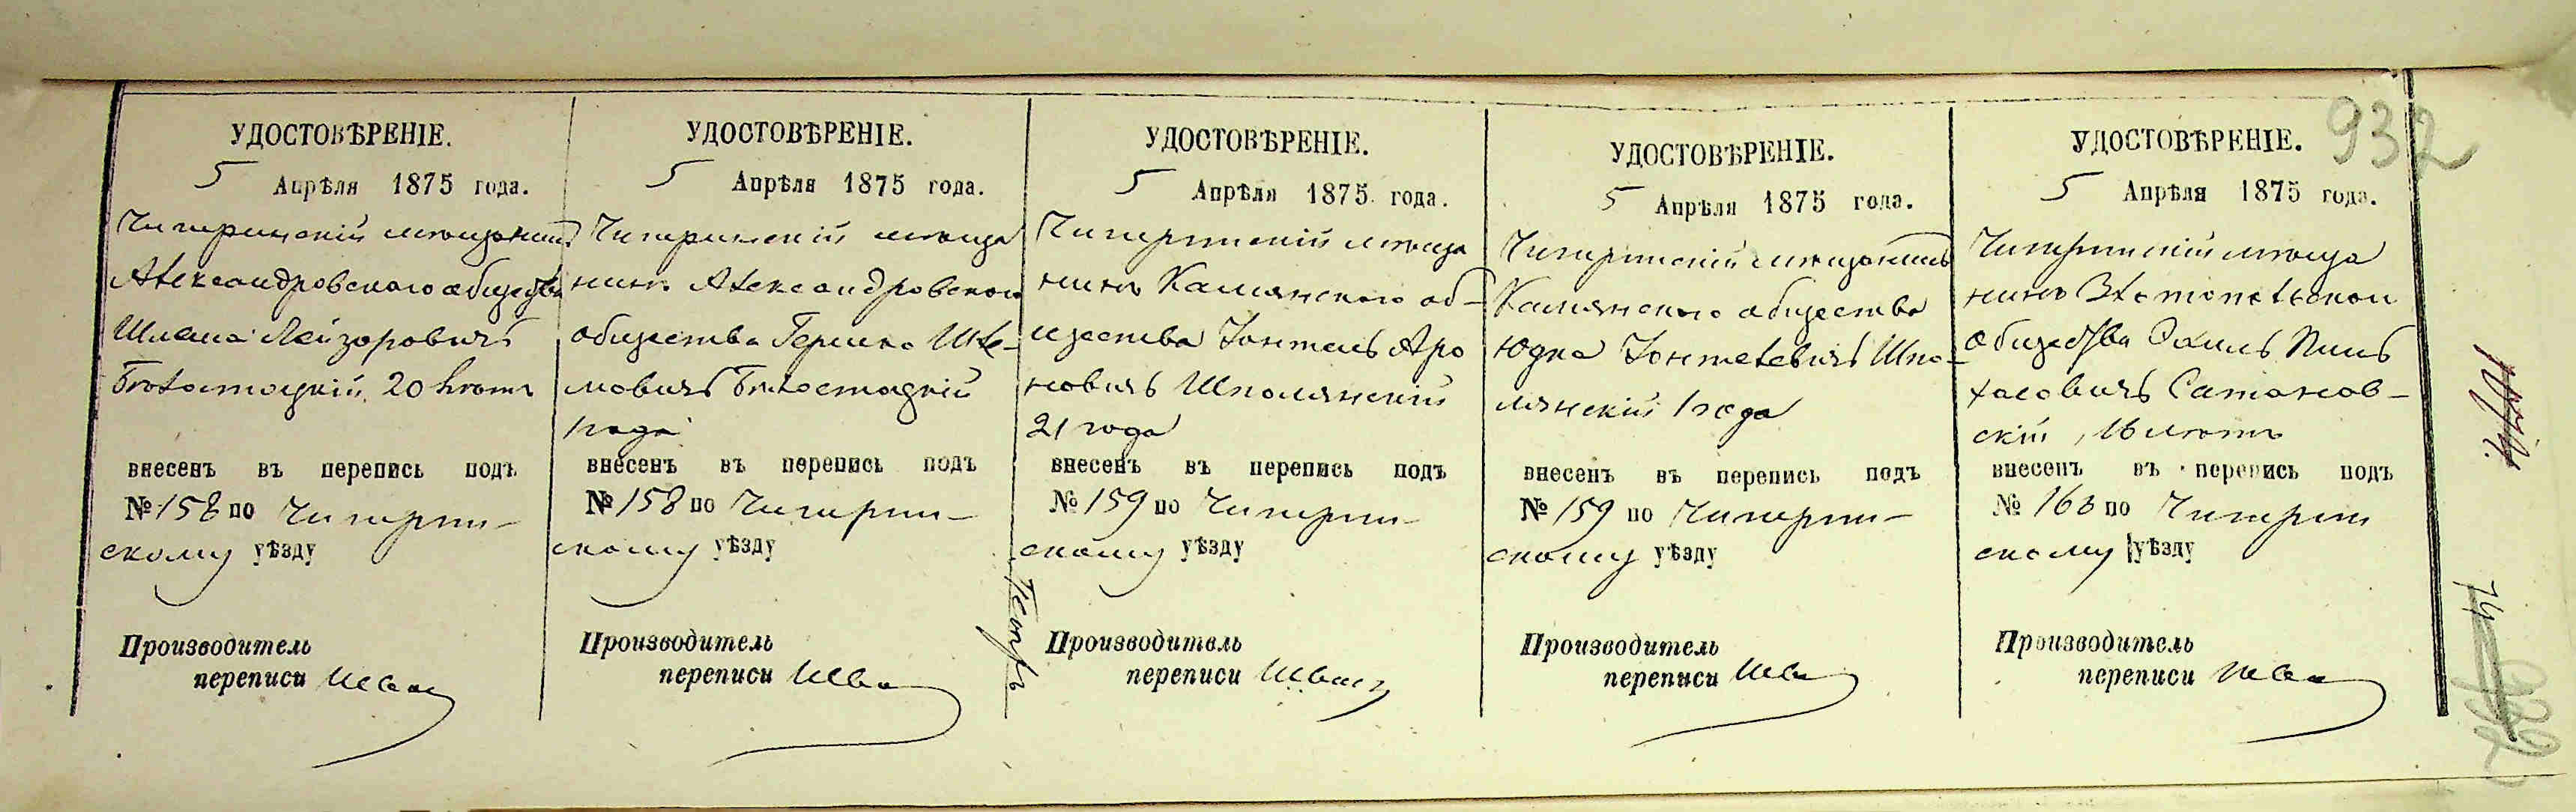 УДОСТОВѢРЕНІЕ.
5 Апрѣля 1875 года.
Чигиринскій мѣщанинъ
Александровскаго общества
Шлема Лейзоровичъ
Бѣлостоцкій, 20 лѣтъ
внесенъ въ перепись подъ
№ 158 по Чигирин-
скому уѣзду
Производитель
переписи
УДОСТОВѢРЕНІЕ.
5 Апрѣля 1875 года.
Чигиринскій мѣща
нинъ Александровскаго
общества Гершко Шле-
мовичъ Бѣлостоцкій
1 года
внесенъ въ перепись подъ
№ 158 по Чигирин-
скому уѣзду
Производитель
переписи
УДОСТОВѢРЕНІЕ.
5 Апрѣля 1875 года.
Чигиринскій мѣща
нинъ Камянскаго об-
щества Іонтель Аро
новичъ Шполянскій
21 года
внесенъ въ перепись подъ
№ 159 по Чигирин-
скому уѣзду
Производитель
переписи
УДОСТОВѢРЕНІЕ.
5 Апрѣля 1875 года.
Чигиринскій мѣщанинъ
Камянскаго общества
Юдка Іонтелевичъ Шпо-
лянскій 1 года
внесенъ въ перепись подъ
№ 159 по Чигирин-
скому уѣзду
Производитель
переписи
932
УДОСТОВѢРЕНІЕ.
5 Апрѣля 1875 года.
Чигиринскій мѣща
нинъ Златопольскаго
общества Пин
хасовичъ Сатанов-
скій, 16 лѣтъ
внесенъ въ перепись подъ
№ 163 по Чигирин
скому уѣзду
Производитель
переписи
74